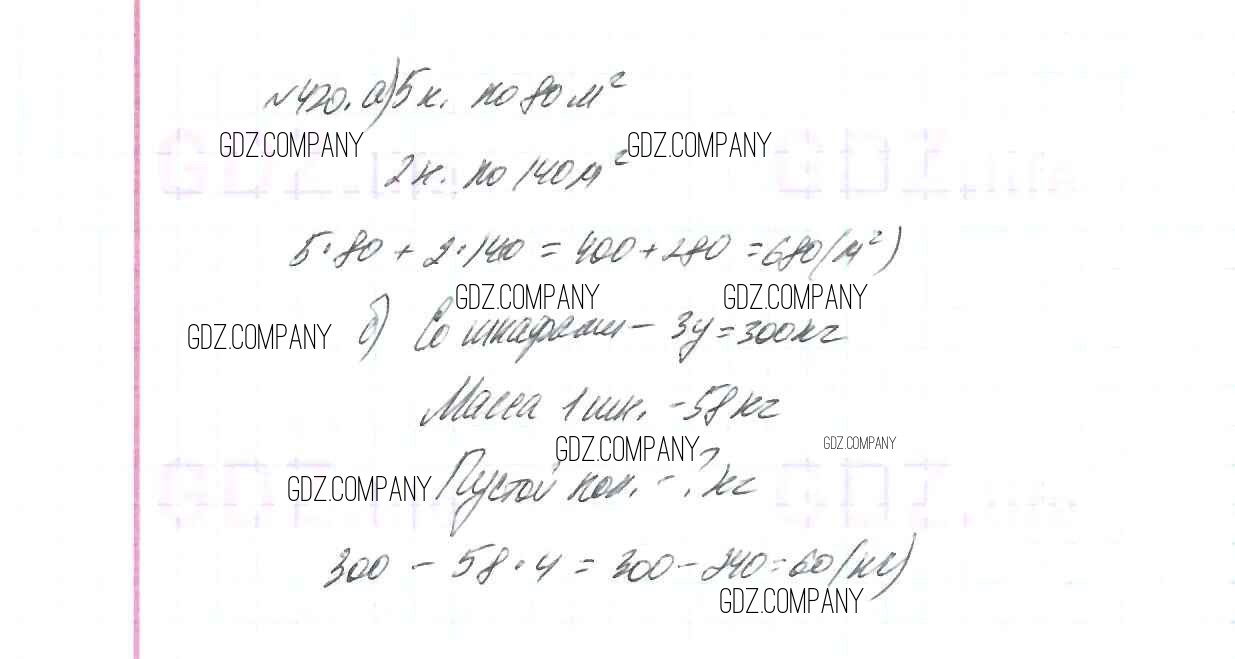 №420. а) 5 к. по 80 м²
GDZ.COMPANY GDZ.COMPANY
2 к. по 140 м²
5·80 + 2·140 = 400 + 280 = 680 (м²)
GDZ.COMPANY GDZ.COMPANY
GDZ.COMPANY б) Со шкафами – 3ц = 300 кг
Масса 1 шк. – 58 кг
GDZ.COMPANY GDZ.COMPANY
GDZ.COMPANY Пустой – ? кг
300 – 58·4 = 300 – 240 = 60 (кг)
GDZ.COMPANY